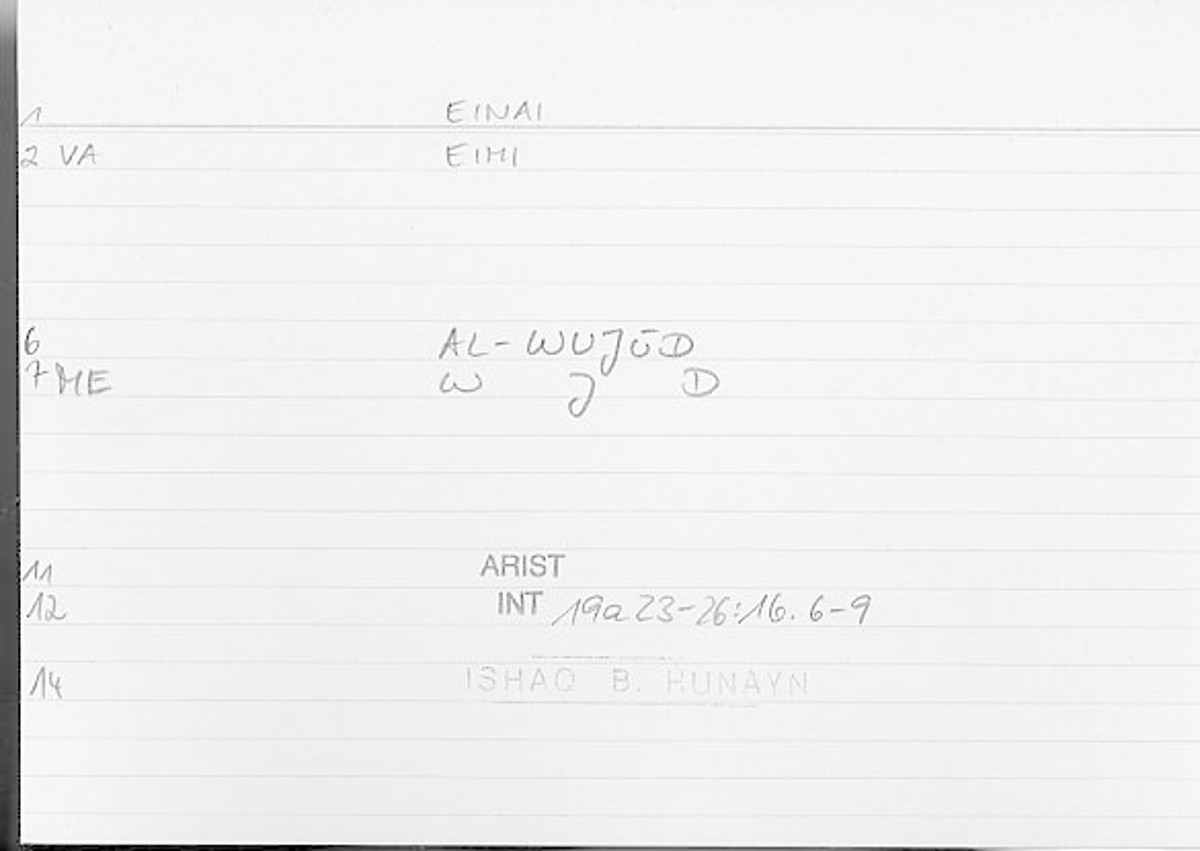 1 EINAI
2 VA EIMI
6 AL-WUJŪD
7 ME W J D
11 ARIST
12 INT 19a23-26:16.6-9
14 ISHAQ B. HUNAYN